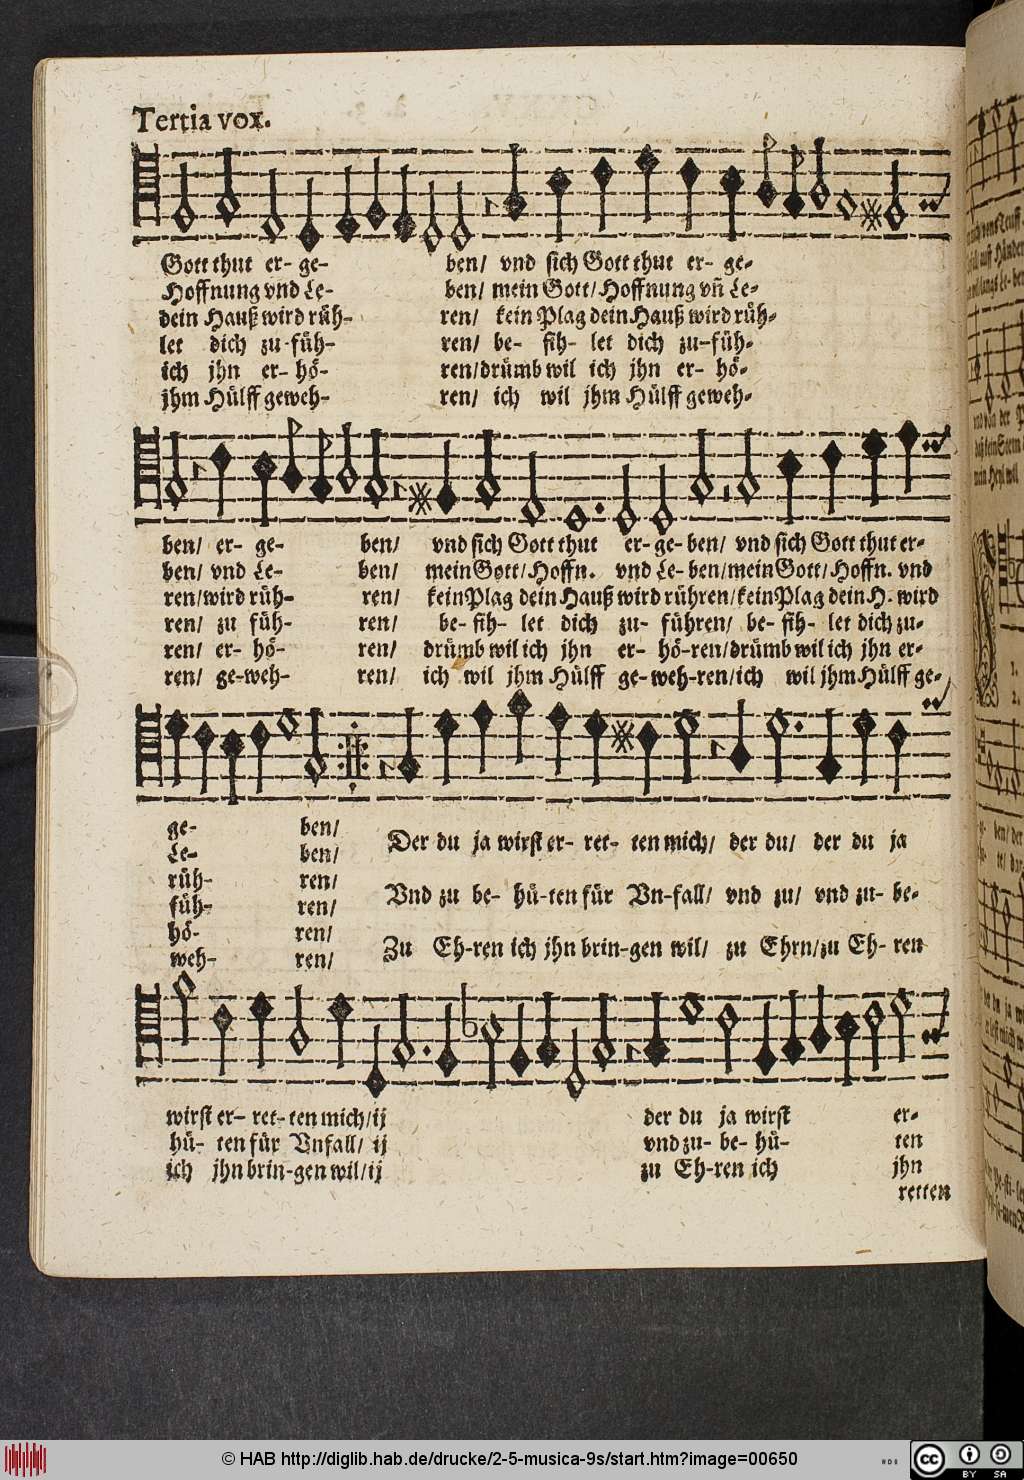 Tertia vox.
Gott thut er- ge- ben/ vnd sich Gott thut er- ge-
Hoffnung vnd Le- ben/ mein Gott/ Hoffnung vñ Le-
dein Hauß wird rüh- ren/ kein Plag dein Hauß wird rüh-
let dich zu-füh- ren/ be- fih- let dich zu-füh-
ich jhn er- hö- ren/drümb wil ich jhn er- hö-
jhm Hülff geweh- ren/ ich wil jhm Hülff geweh-
ben/ er- ge- ben/ vnd sich Gott thut er-ge-ben/ vnd sich Gott thut er-
ben/ vnd Le- ben/ mein Gott/ Hoffn. vnd Le-ben/mein Gott/ Hoffn. vnd
ren/wird rüh- ren/ kein Plag dein Hauß wird rühren/kein Plag dein H. wird
ren/ zu füh- ren/ be-fih- let dich zu- führen/ be- fih- let dich zu-
ren/ er- hö- ren/ drümb wil ich jhn er- hö-ren/drümb wil ich jhn er-
ren/ ge-weh- ren/ ich wil jhm Hülff ge-weh-ren/ich wil jhm Hülff ge-
ge- ben/
Le- ben/
Der du ja wirst er- ret- ten mich/ der du/ der du ja
rüh- ren/
füh- ren/
Vnd zu be- hü-ten für Vn-fall/ vnd zu/ vnd zu- be-
hö- ren/
weh- ren/
Zu Eh-ren ich jhn brin-gen wil/ zu Ehrn/zu Eh- ren
wirst er- ret-ten mich/ij der du ja wirst er-
hü- ten für Vnfall/ ij vnd zu- be- hü- ten
ich jhn brin-gen wil/ij zu Eh-ren ich jhn
retten
© HAB http://diglib.hab.de/drucke/2-5-musica-9s/start.htm?image=00650
cc
BY SA